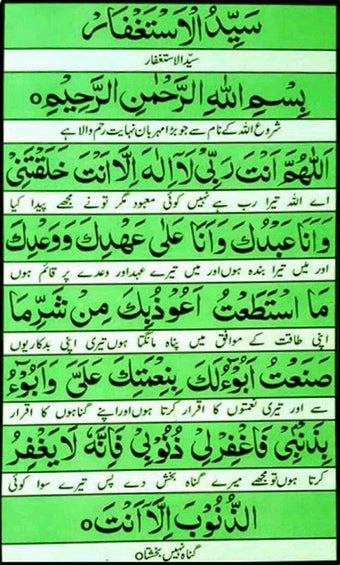 سَيِّدُ الْاِسْتَغْفَار
سیّد الاستغفار
بِسْمِ اللّٰهِ الرَّحْمٰنِ الرَّحِيْمِ ○
شروع اللہ کے نام سے جو بڑا مہربان نہایت رحم والا ہے
اَللّٰهُمَّ اَنْتَ رَبِّىْ لَآ اِلٰهَ اِلَّا اَنْتَ خَلَقْتَنِىْ
اے اللہ تیرا رب ہے نہیں کوئی معبود مگر تو نے مجھے پیدا کیا
وَاَنَا عَبْدُكَ وَاَنَا عَلٰى عَهْدِكَ وَوَعْدِكَ
اور میں تیرا بندہ ہوں اور میں تیرے عہد اور وعدے پر قائم ہوں
مَا اسْتَطَعْتُ اَعُوْذُبِكَ مِنْ شَرِّمَا
اپنی طاقت کے موافق میں پناہ مانگتا ہوں تیری اپنی بدکاریوں
صَنَعْتُ اَبُوْءُ لَكَ بِنِعْمَتِكَ عَلَىَّ وَاَبُوْءُ
سے اور تیری نعمتوں کا اقرار کرتا ہوں اور اپنے گناہوں کا اقرار
بِذَنْبِىْ فَاغْفِرْلِىْ ذُنُوْبِىْ فَاِنَّهٗ لَا يَغْفِرُ
کرتا ہوں تو مجھے میرے گناہ بخش دے پس تیرے سوا کوئی
الذُّنُوْبَ اِلَّا اَنْتَ ○
گناہ نہیں بخشتا ○